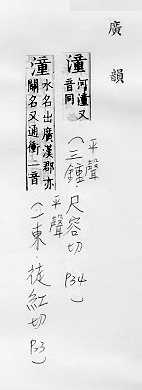 廣韻
潼 河潼又音同
平聲
(三鍾·尺容切 P34)
潼 水名出廣漢郡亦關名又通衝一音
平聲
(一東·徒紅切 P3)